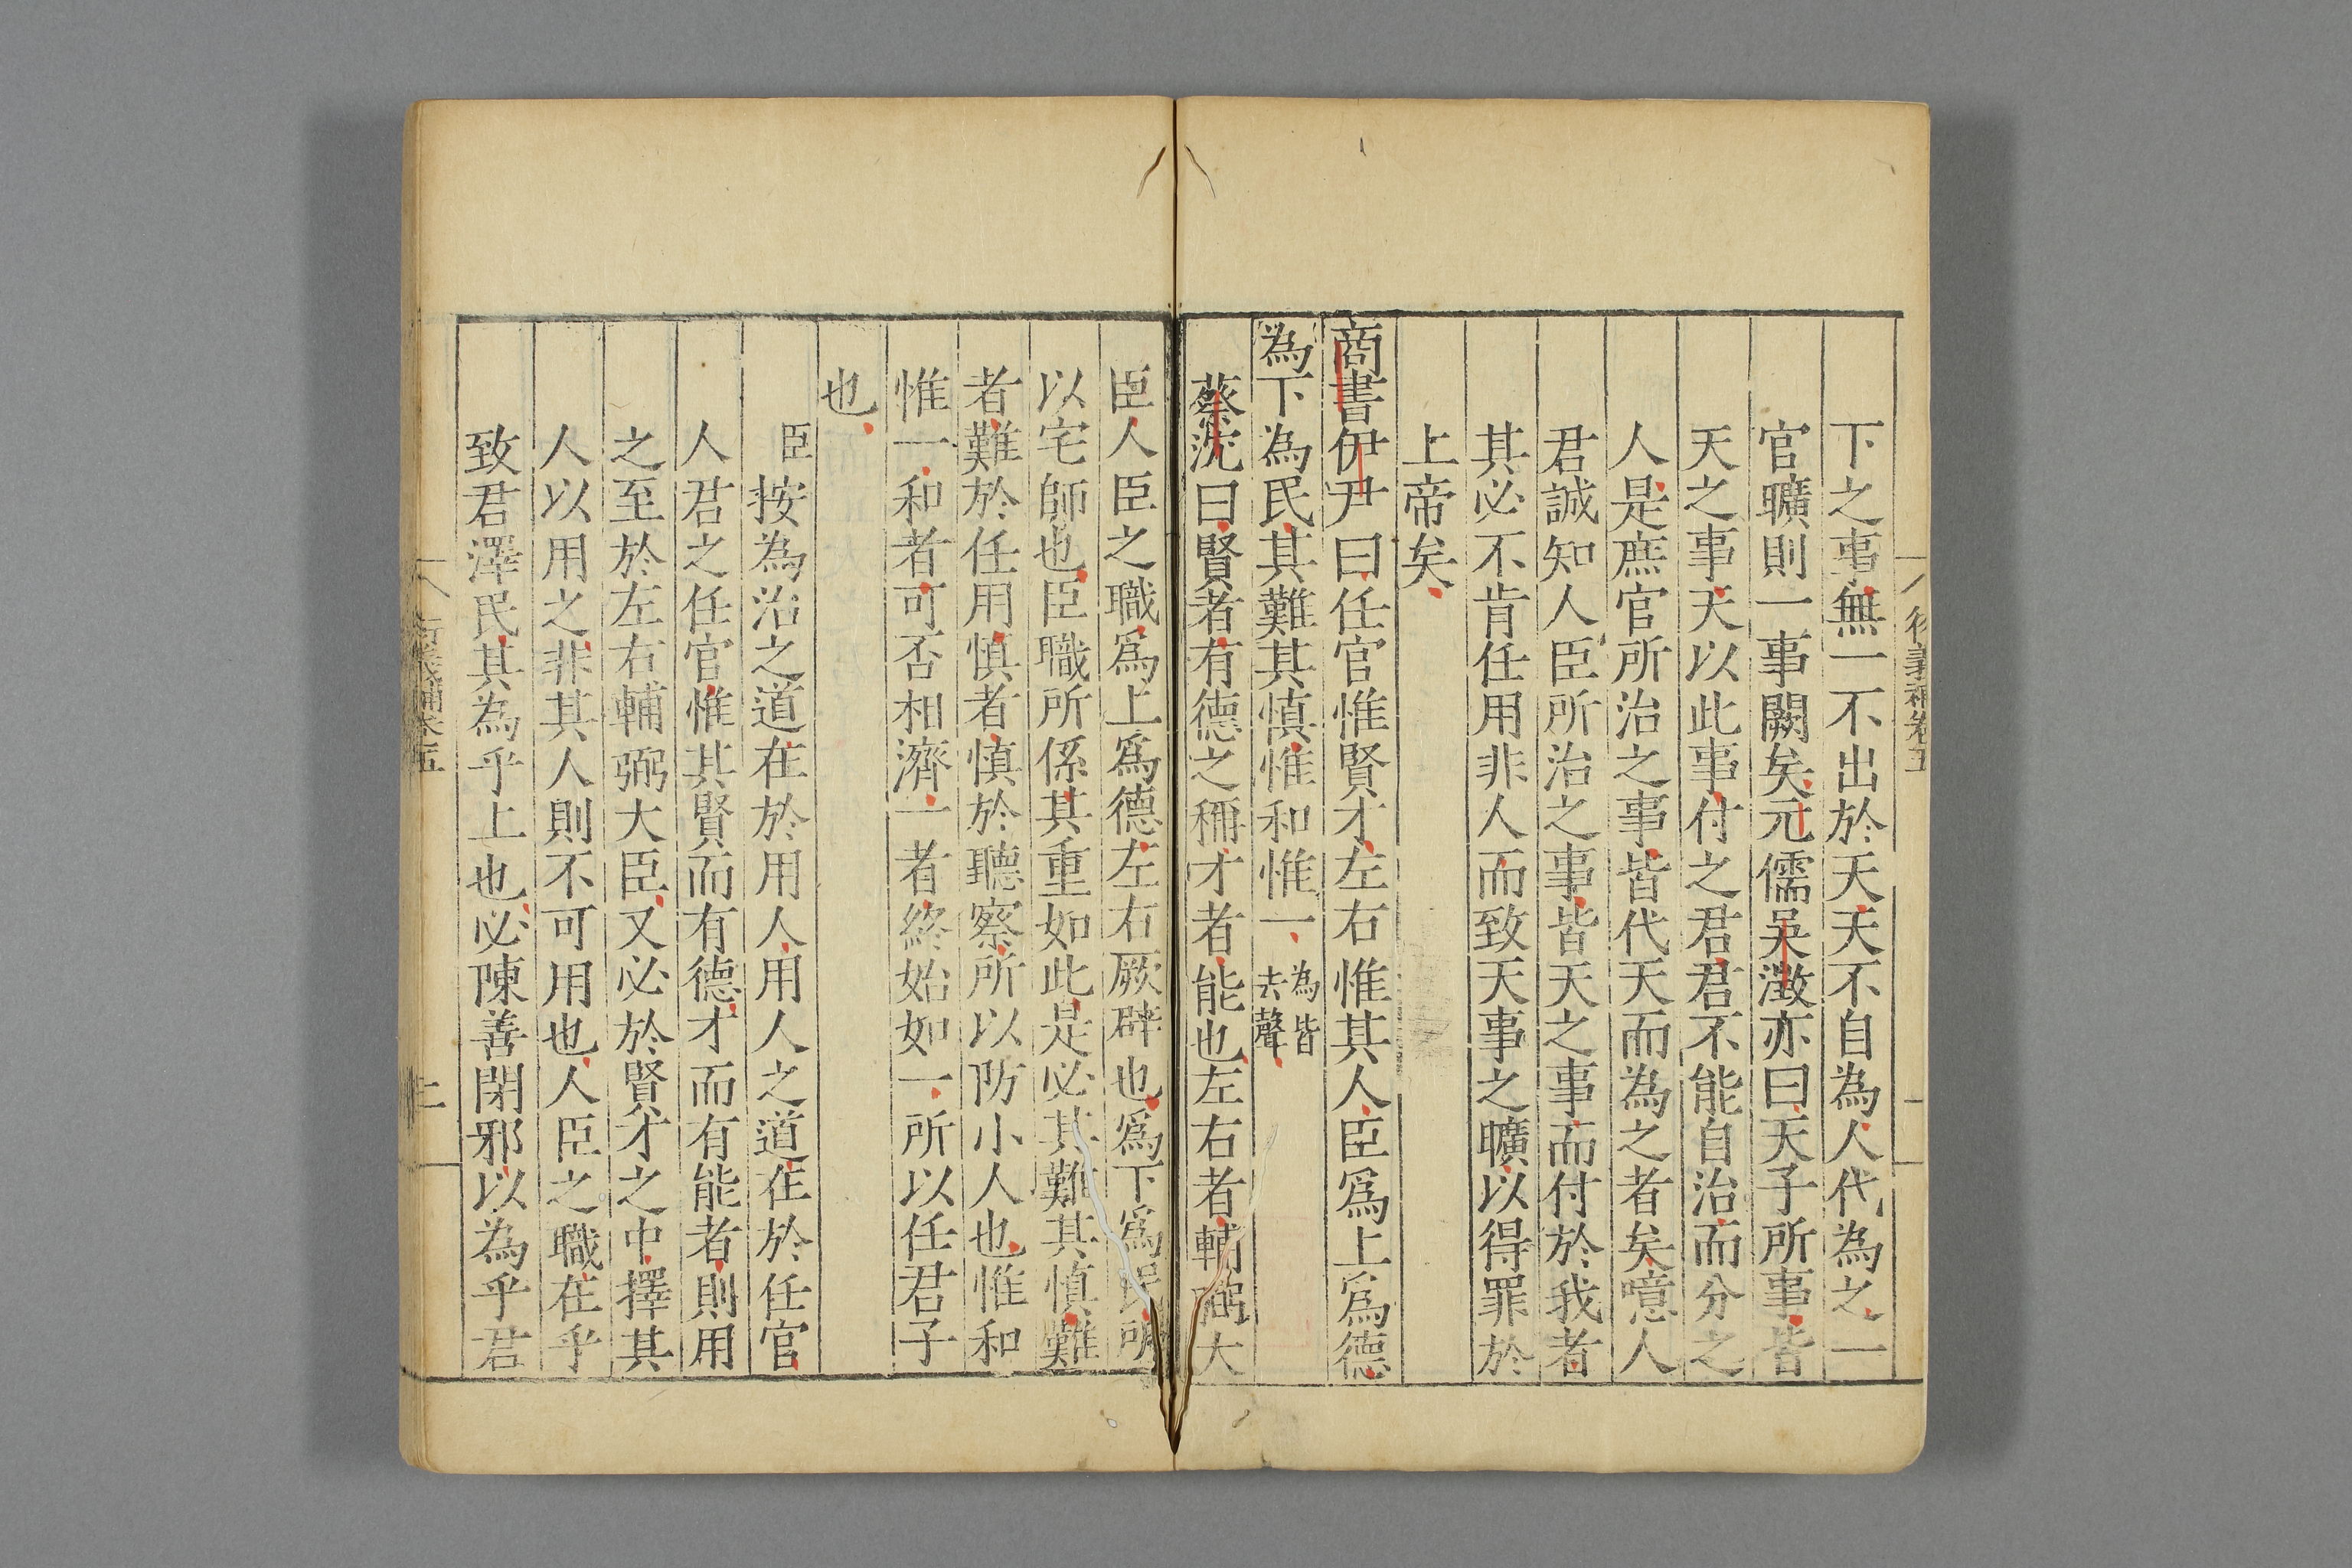 下之事無一不出於天天不自為人代為之一
官曠則一事闕矣元儒吴澂亦曰天子所事皆
天之事天以此事付之君君不能自治而分之
人是庶官所治之事皆代天而為之者矣噫人
君誠知人臣所治之事皆天之事而付於我者
其必不肯任用非人而致天事之曠以得罪於
上帝矣
商書伊尹曰任官惟賢才左右惟其人臣爲上爲德
為下為民其難其慎惟和惟一為皆去聲
蔡沈曰賢者有德之稱才者能也左右者輔弼大
臣人臣之職爲上爲德左右厥辟也爲下爲民所
以宅師也臣職所係其重如此是必其難其慎難
者難於任用慎者慎於聽察所以防小人也惟和
惟一和者可否相濟一者終始如一所以任君子
也
臣按為治之道在於用人用人之道在於任官
人君之任官惟其賢而有德才而有能者則用
之至於左右輔弼大臣又必於賢才之中擇其
人以用之非其人則不可用也人臣之職在乎
致君澤民其為乎上也必陳善閉邪以為乎君
義補卷五